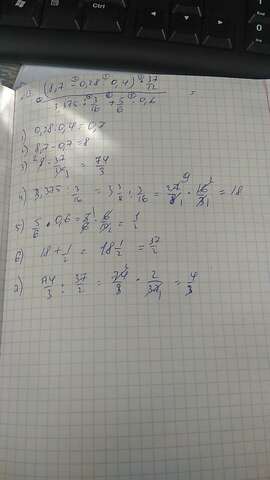 (8,7 - 0,28 : 0,4) · 37/12
3,375 : 3/16 + 5/6 · 0,6 =
1) 0,28 : 0,4 = 0,7
2) 8,7 - 0,7 = 8
3) 8 · 37/12 = 74/3
4) 3,375 : 3/16 = 3 3/8 : 3/16 = 27/8 · 16/3 = 18
5) 5/6 · 0,6 = 5/6 · 6/10 = 1/2
6) 18 + 1/2 = 18 1/2 = 37/2
7) 74/3 : 37/2 = 74/3 · 2/37 = 4/3